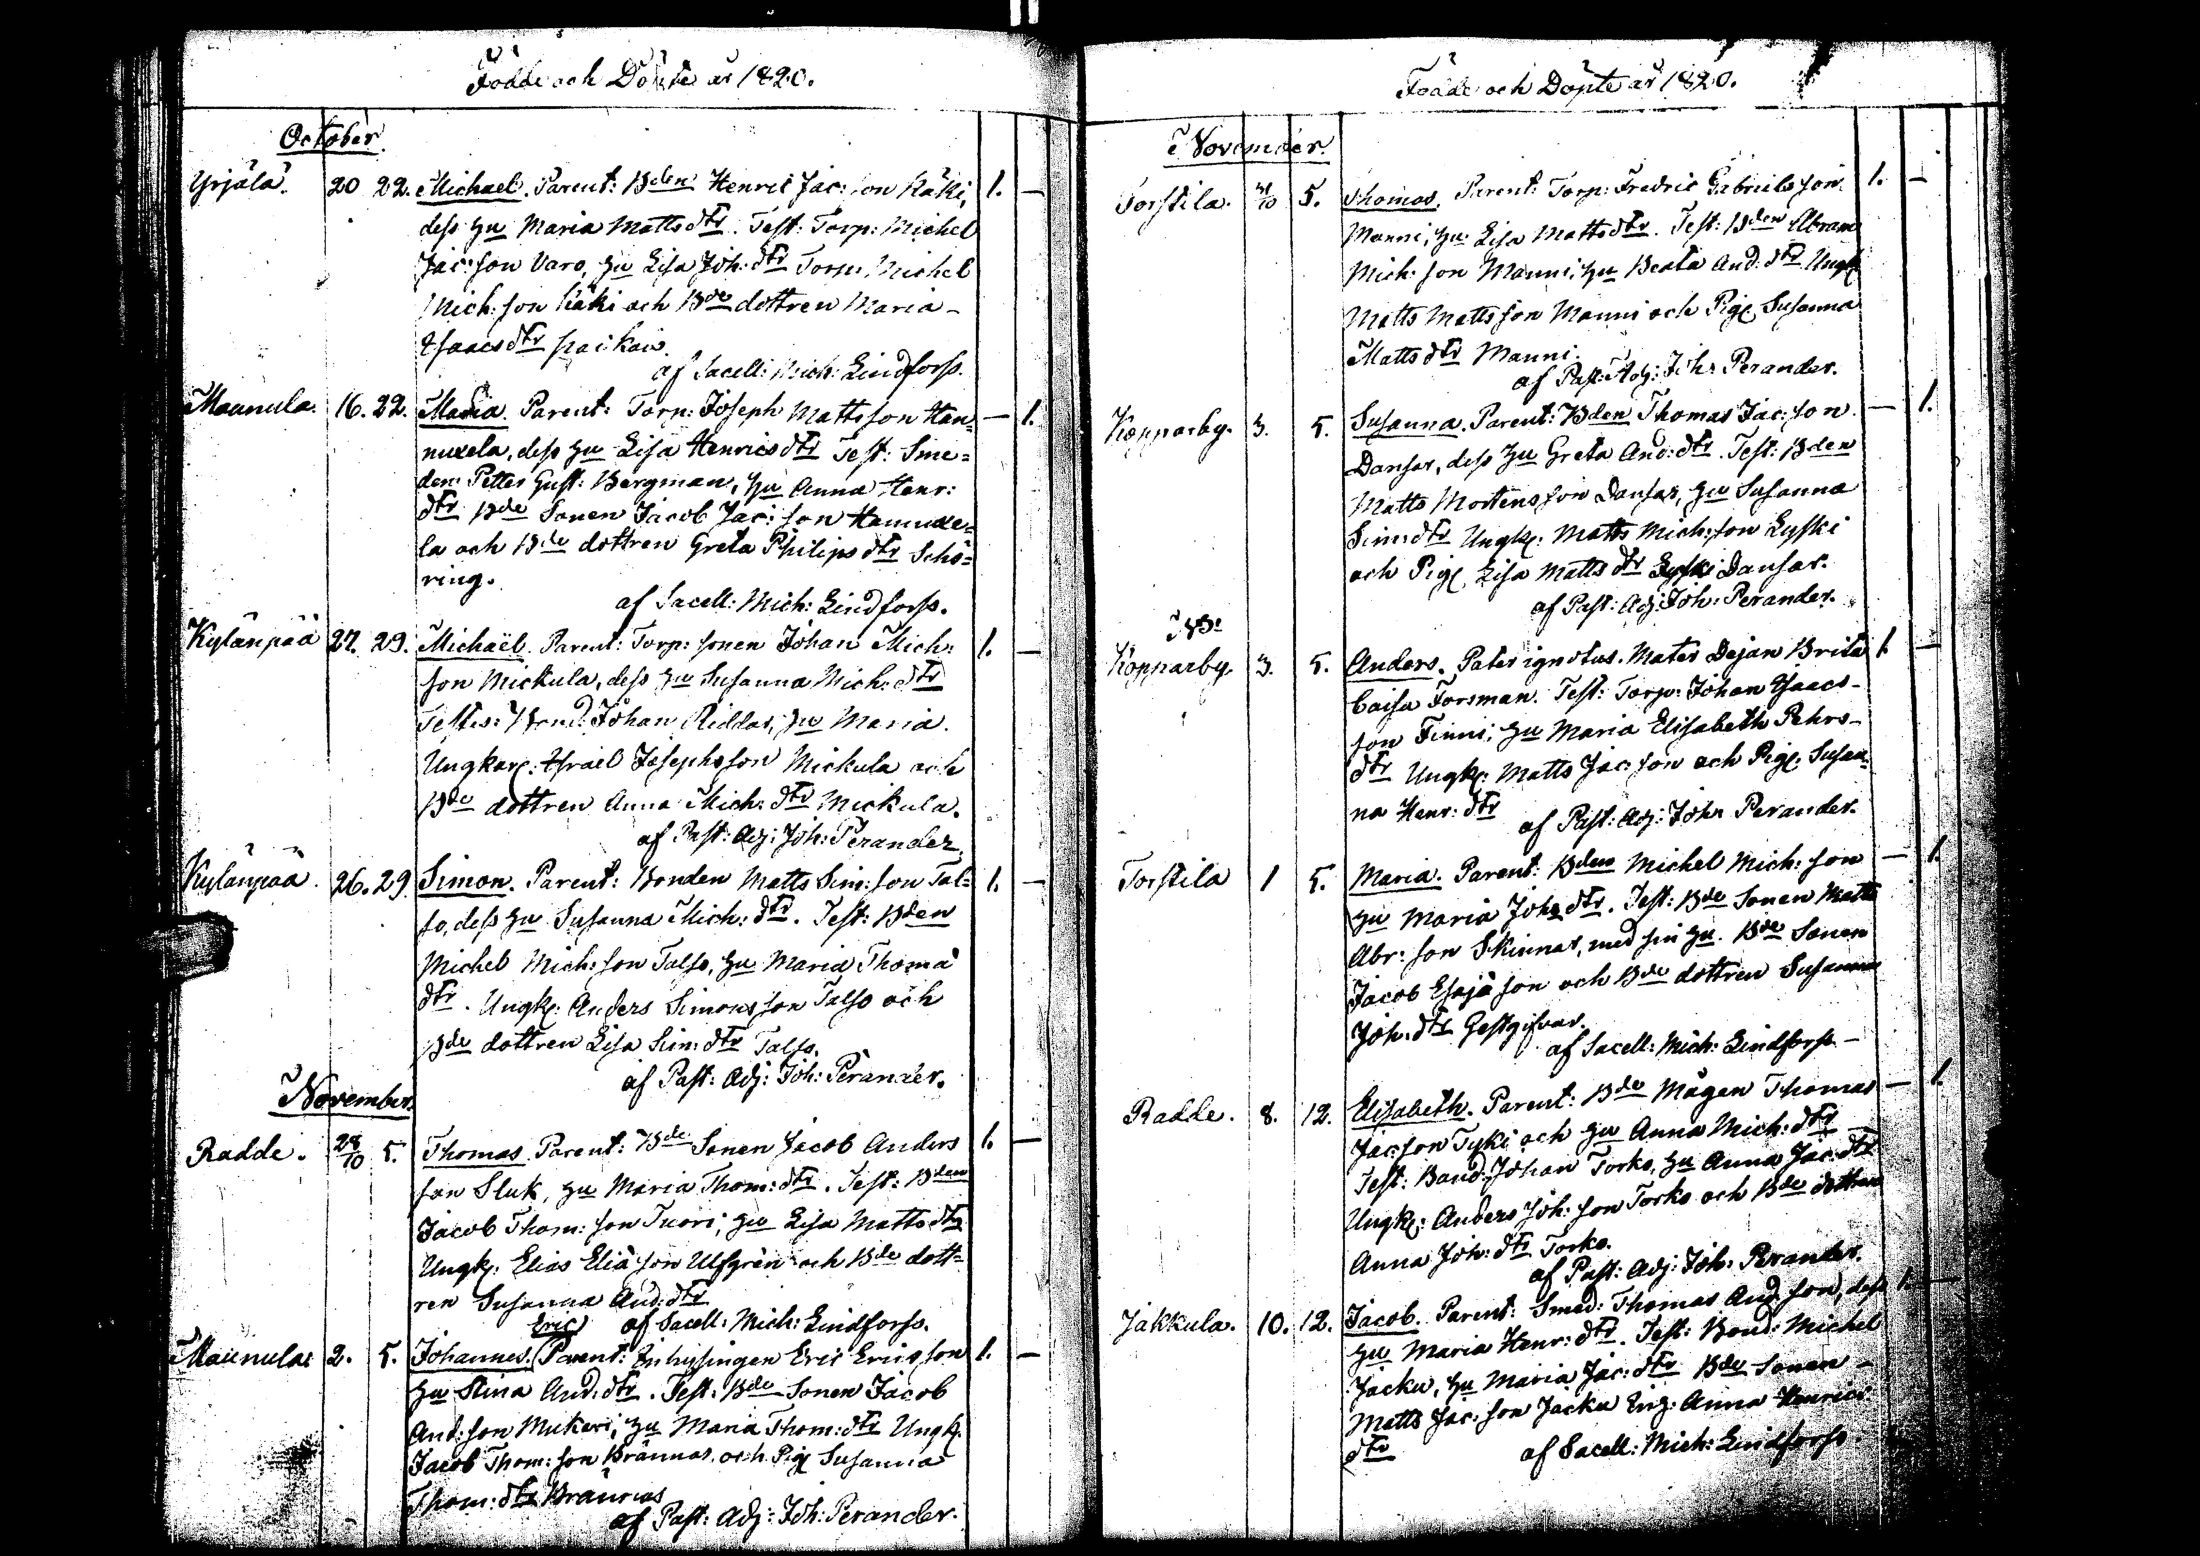 Födde och Döpte år 1820.
October.
Yrjälä. 20 22. Michael. Parent: Bden Henric Jac: son Käki, 1. —
dess hu Maria Matts dtr. Test: Torp: Michel
Jac: son Varo, hu Lisa Joh: dtr Torp: Michel
Mich: son Käki och Bde dottren Maria –
Isaacs dtr
af Sacell: Mich: Lindforss.
Maunula. 16. 22. Maria. Parent: Torp: Joseph Matts son Han= — 1.
nuxela, dess hu Lisa Henrics dtr Test: Sme=
den: Petter Gust: Bergman, hu Anna Henr:
dtr Bde Sonen Jacob Jac: son Hannuxe=
la och Bde dottren Greta Philips dtr Schö=
ring.
af Sacell: Mich: Lindforss.
Kylänpää 27. 29. Michaël. Parent: Torp: sonen Johan Mich: 1. —
son Mickula, dess hu Susanna Mich: dtr
Testes: Bond: Johan Riddar, hu Maria.
Ungkarl: Israel Josephs son Mickula och
Bde dottren Anna Mich: dtr Mickula.
af Past: Adj: Joh: Perander.
Kylänpää. 26. 29. Simon. Parent: Bonden Matts Sim: son Tal= 1. —
so, dess hu Susanna Mich: dtr. Test: Bden
Michel Mich: son Talso, hu Maria Thomä
dtr. Ungk: Anders Simons son Talso och
Bde dottren Lisa Sim: dtr Talso.
af Past: Adj: Joh: Perander.
November.
Radde. 28/10 5. Thomas. Parent: Bde Sonen Jacob Anders 1. —
son Sluk, hu Maria Thom: dtr. Test: Bden
Jacob Thom: son Tuori, hu Lisa Matts dtr
Ungk: Elias Eliä son Ulfgrèn och Bde dott=
ren Susanna And: dtr
af Sacell: Mich: Lindforss.
Eric
Maunula: 2. 5. Johannes. (Parent: Inhysingen Eric Erics son 1. —
hu Stina And: dtr. Test: Bde Sonen Jacob
And: son Mukari, hu Maria Thom: dtr Ungk:
Jacob Thom: son Brännas och Pig: Susanna
Thom: dtr Brännas
af Past: Adj: Joh: Perander.
Födde och Döpte år 1820.
November.
Torstila. 31/10 5. Thomas. Parent: Torp: Fredric Gabriels son 1. —
Manni, hu Lisa Matts dtr. Test: Bden Abram
Mich: son Manni, hu Beata And: dtr Ungk:
Matts Matts son Manni och Pig: Susanna
Matts dtr Manni.
af Past: Adj: Joh: Perander.
Kopparby. 3. 5. Susanna. Parent: Bden Thomas Jac: son — 1.
Dansar, dess hu Greta And: dtr. Test: Bden
Matts Mortens son Dansar, hu Susanna
Sim: dtr Ungk: Matts Mich: son Lyski
och Pig: Lisa Matts dtr Dansar.
af Past: Adj: Joh: Perander.
NB:
Kopparby. 3. 5. Anders. Pater ignotus. Mater Dejan Brita 1. —
Caisa Forsman. Test: Torp: Johan Isaacs –
son Finni, hu Maria Elisabeth Pehrs –
dtr Ungk: Matts Jac: son och Pig: Susan=
na Henr: dtr
af Past: Adj: Joh: Perander.
Torstila 1 5. Maria. Parent: Bden Michel Mich: son — 1.
hu Maria Joh: dtr. Test: Bde Sonen Matts
Abr: son Skinnar, med sin hu. Bde Sonen
Jacob Esajä son och Bde dottren Susanna
Joh: dtr Gestgifvar.
af Sacell: Mich: Lindforss. –
Radde. 8. 12. Elisabeth. Parent: Bde Mågen Thomas — 1.
Jac: son Tyki och hu Anna Mich: dtr
Test: Bond: Johan Torko, hu Anna Jac: dtr
Ungk: Anders Joh: son Torko och Bde dottren
Anna Joh: dtr Torko.
af Past: Adj: Joh: Perander.
Jakkula. 10. 12. Jacob. Parent: Smed: Thomas And: son, dess 1. —
hu Maria Henr: dtr. Test: Bond: Michel
Jacku, hu Maria Jac: dtr Bde Sonen –
Matts Jac: son Jacku Anna Henrics
dtr
af Sacell: Mich: Lindforss.